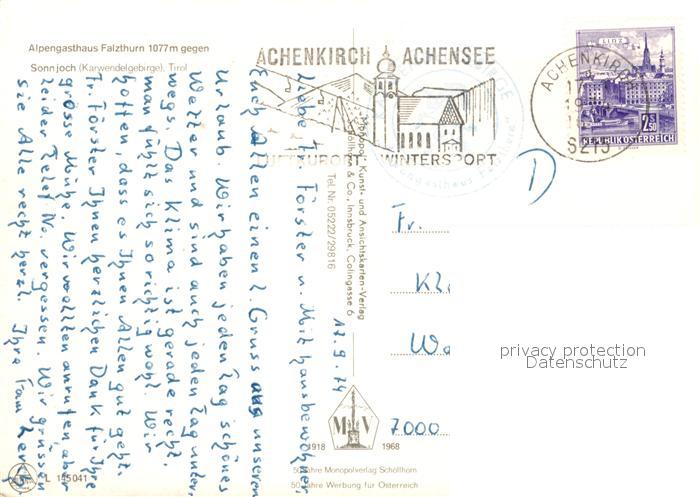 Alpengasthaus Falzthurn 1077m gegen
Sonnjoch (Karwendelgebirge), Tirol
ACHENKIRCH ACHENSEE
LUFTKURORT WINTERSPORT
LINZ
ACHENKIRCH
REPUBLIK ÖSTERREICH
2S50
6215
D
Liebe Fr. Förster u. Mithausbewohner
Euch Allen einen l. Gruss aus unseren
Urlaub. Wir haben jeden Tag schönes
Wetter und sind auch jeden Tag unter-
wegs. Das Klima ist gerade recht,
man fühlt sich so richtig wohl. Wir
hoffen, dass es Ihnen Allen gut geht.
Fr. Förster Ihnen herzlichen Dank für Ihre
grosse Mühe. Wir wollten anrufen, aber
leider Telef. No. vergessen. Wir grüssen
sie Alle recht herzl. Ihre Fam.
17.9.74
Monopol, Kunst- und Ansichtskarten-Verlag
Schöllhorn & Co., Innsbruck, Colingasse 6
Tel. Nr. 05222/29816
Fr.
Kl.
Wa
7000
privacy protection
Datenschutz
M V
1918 1968
50 Jahre Monopolverlag Schöllhorn
50 Jahre Werbung für Österreich
L 145041